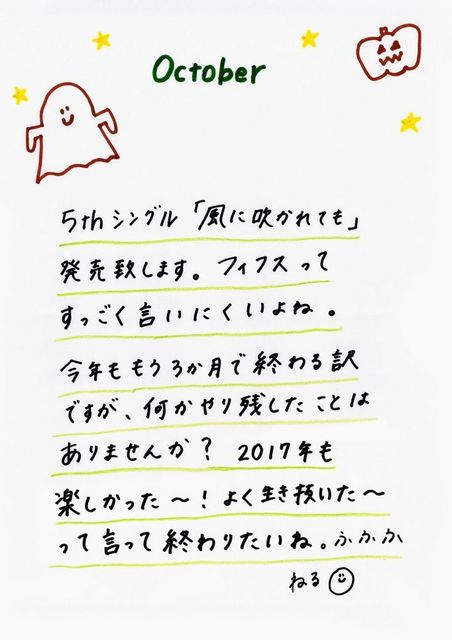 October
5thシングル「風に吹かれても」
発売致します。フィフスって
すっごく言いにくいよね。
今年ももう3か月で終わる訳
ですが、何かやり残したことは
ありませんか？ 2017年も
楽しかった〜！よく生き抜いた〜
って言って終わりたいね。ふふふ
ねる